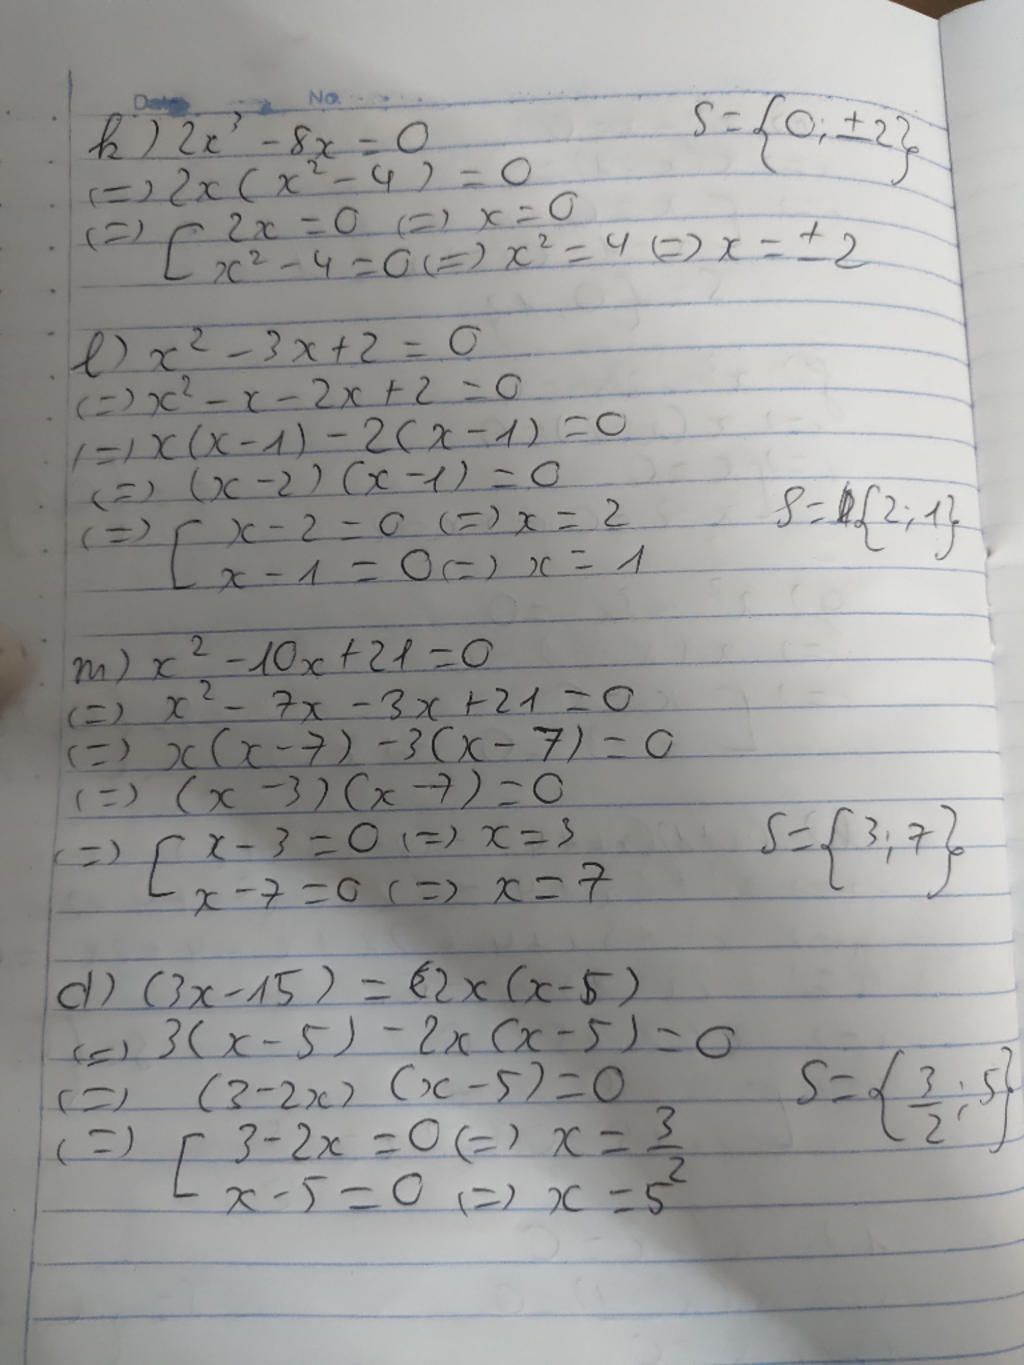 Date No.
k) 2x³ - 8x = 0 S = {0; ±2}
(=) 2x(x² - 4) = 0
(=) [ 2x = 0 (=) x = 0
x² - 4 = 0 (=) x² = 4 (=) x = ±2
l) x² - 3x + 2 = 0
(=) x² - x - 2x + 2 = 0
(=) x(x - 1) - 2(x - 1) = 0
(=) (x - 2)(x - 1) = 0
(=) [ x - 2 = 0 (=) x = 2 S = {2; 1}
x - 1 = 0 (=) x = 1
m) x² - 10x + 21 = 0
(=) x² - 7x - 3x + 21 = 0
(=) x(x - 7) - 3(x - 7) = 0
(=) (x - 3)(x - 7) = 0
(=) [ x - 3 = 0 (=) x = 3 S = {3; 7}
x - 7 = 0 (=) x = 7
d) (3x - 15) = 2x(x - 5)
(=) 3(x - 5) - 2x(x - 5) = 0
(=) (3 - 2x) (x - 5) = 0 S = {3/2; 5}
(=) [ 3 - 2x = 0 (=) x = 3/2
x - 5 = 0 (=) x = 5